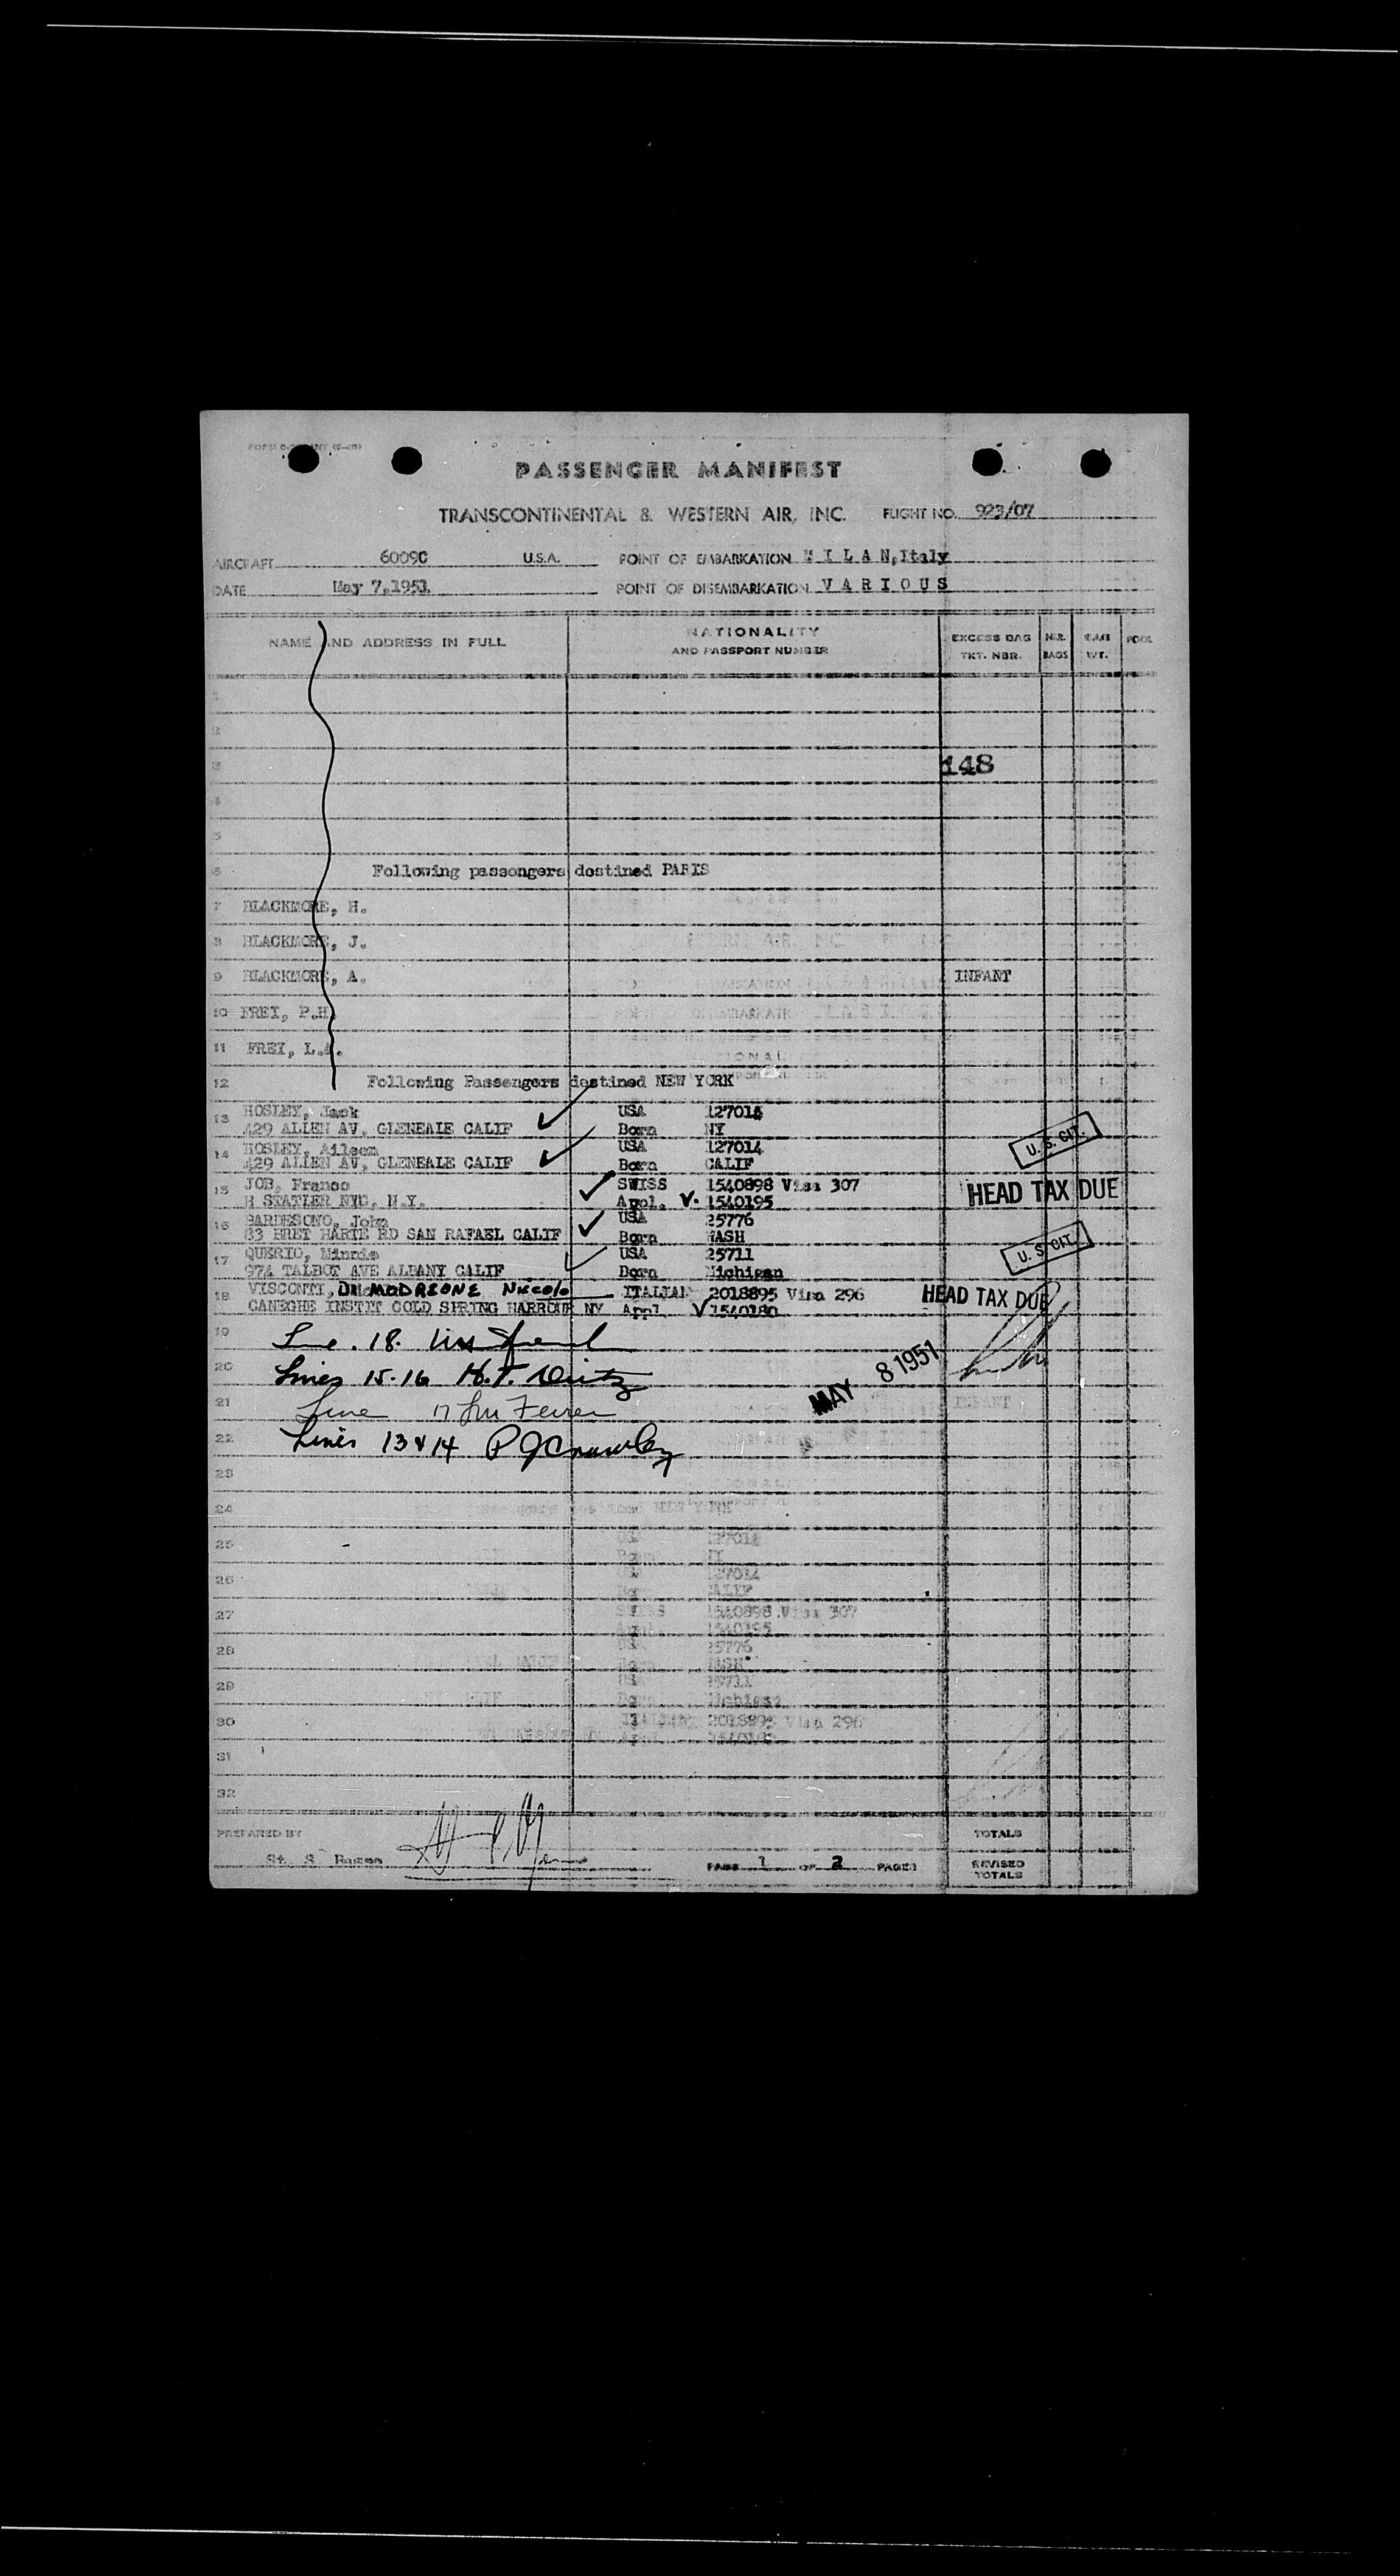 PASSENGER MANIFEST
TRANSCONTINENTAL & WESTERN AIR, INC. FLIGHT NO. 923/07
AIRCRAFT 6009C U.S.A. POINT OF EMBARKATION MILAN, Italy
DATE May 7, 1951 POINT OF DISEMBARKATION VARIOUS
NAME AND ADDRESS IN FULL NATIONALITY AND PASSPORT NUMBER EXCESS BAG TKT. NBR. NBR. BAGS BAG WT. POOL
1
2
3 148
4
5
6 Following passengers destined PARIS
7 BLACKMORE, H.
8 BLACKMORE, J.
9 BLACKMORE, A. INFANT
10 FREI, P.H.
11 FREI, L.A.
12 Following Passengers destined NEW YORK
13 HOSLEY, Jack USA 127014
429 ALLEN AV, GLENEALE CALIF Born NY
14 HOSLEY, Aileen USA 127014 U.S. CIT.
429 ALLEN AV, GLENEALE CALIF Born CALIF
15 JOB, Franco SWISS 1540898 Visa 307 HEAD TAX DUE
H STATLER NYC, N.Y. Appl. V. 1540195
16 BARDESONO, John USA 25776
83 BRET HARTE RD SAN RAFAEL CALIF Born WASH
17 QUERIO, Minnie USA 25711 U.S. CIT.
974 TALBOT AVE ALBANY CALIF Born Michigan
18 VISCONTI, DI MODRZONE Niccolo ITALIAN 2018895 Visa 296 HEAD TAX DUE
CANEGHE INSTIT COLD SPRING HARBOUR NY Appl V 1540180
19 Line. 18.
20 Lines 15-16 H.F. Dietz MAY 8 1951
21 Line 17
22 Lines 13 & 14 P J Crowley
23
24
25
26
27
28
29
30
31
32
PREPARED BY TOTALS
PAGE 1 OF 2 PAGES REVISED TOTALS